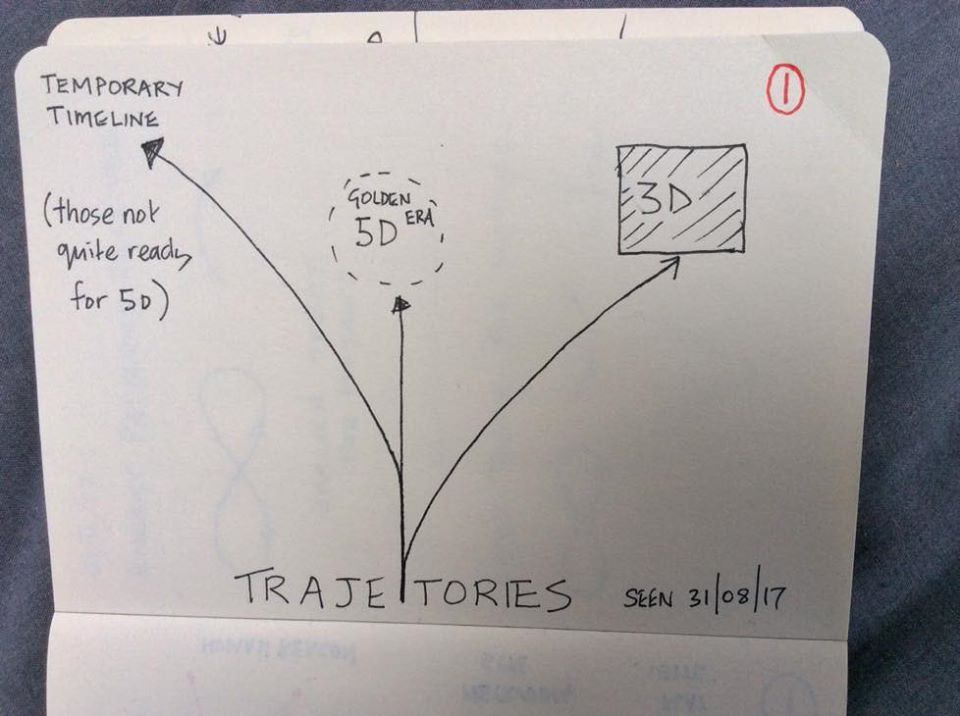 TEMPORARY
TIMELINE
(those not
quite ready
for 5D)
GOLDEN
ERA
5D
3D
1
TRAJE TORIES
SEEN 31/08/17
HUMAN BEACON